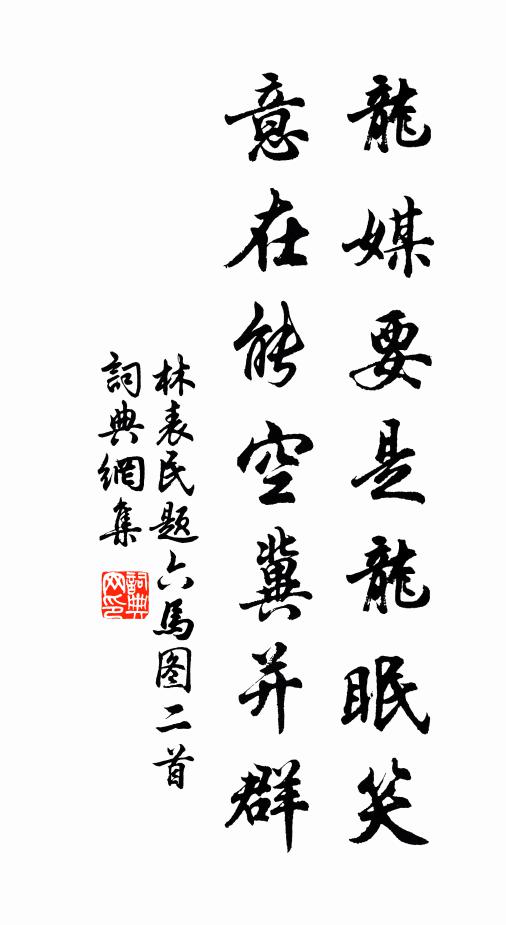 龍媒要是龍眠笑
意在能空冀并群
林表民題六馬图二首
詞典網集
詞典网印